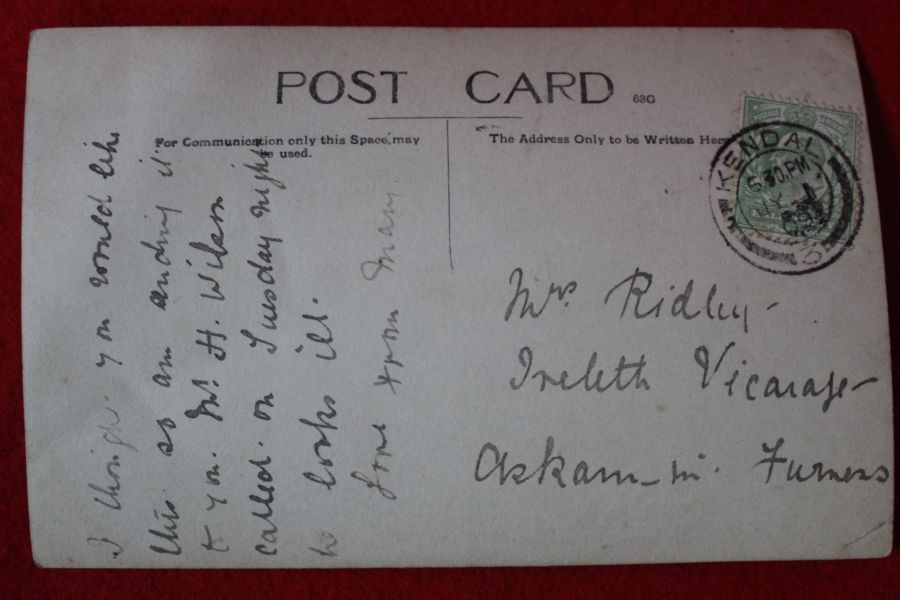 POST CARD 63G
For Communication only this Space may
be used.
The Address Only to be Written Here
KENDAL
6.30.PM
I thought you would like
this so am ending it
to you. Mr. H. Wilson
called on Tuesday night
he looks ill.
Love from Mary.
Mrs Ridley
Ireleth Vicarage
Askam-in-Furness